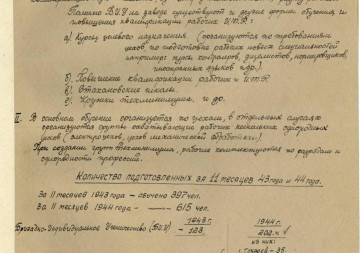 Помимо В.И.У на заводе существуют и другие формы обучения и
повышения квалификации рабочих и И.Т.Р.
а) Курсы целевого назначения. (организуются по требованиям
цехов, по подготовке рабочих новых специальностей
например курсы
иностранных языков и др.)
б) Повышение квалификации рабочих и И.Т.Р.
в) Стахановские школы.
г) Кружки техминимума, и др.
II. В основном обучение организуется по цехам, в отдельных случаях
организуются группы охватывающие рабочих нескольких
цехов (электроцехов, цехов механической обработки.)
При создании групп Техминимума, рабочие комплектуются по разрядам и
однородности профессий.
Количество подготовленных за 11 месяцев 43 года и 44 года.
За 11 месяцев 1943 года – обучено 397 чел.
За 11 месяцев 1944 года – – 615 чел.
1943 г. 1944 г.
Бригадно-Индивидуальное Ученичество (В.И.У) – 183
из них: